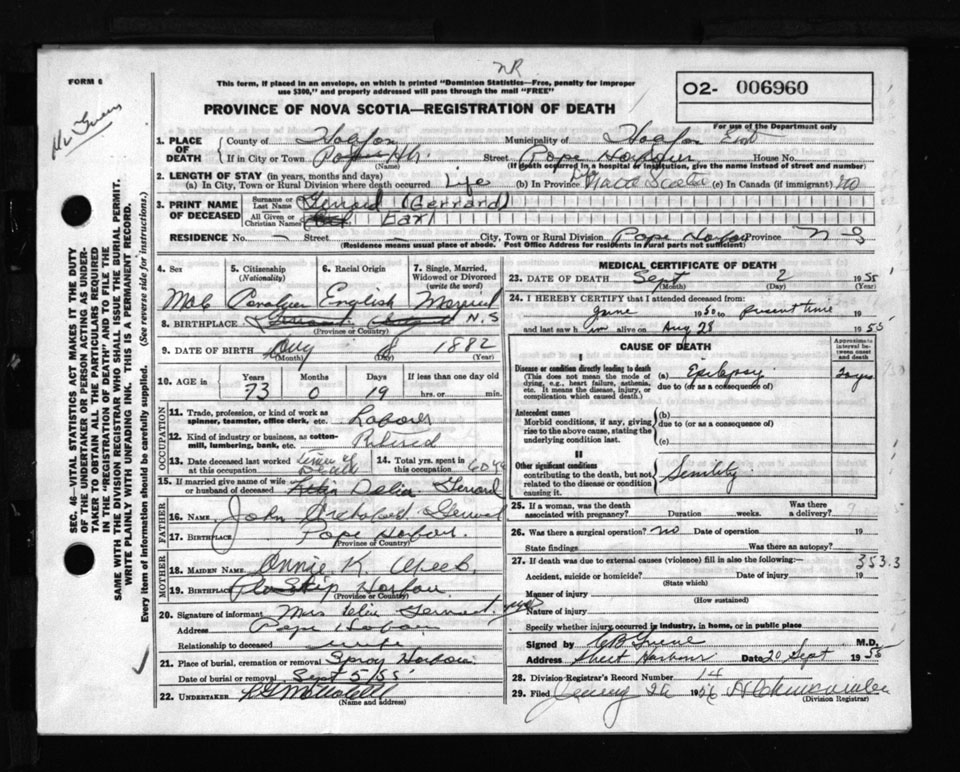 NR
FORM 6
This form, if placed in an envelope, on which is printed "Dominion Statistics—Free, penalty for improper
use $300," and properly addressed will pass through the mail "FREE"
O2- 006960
For use of the Department only
PROVINCE OF NOVA SCOTIA—REGISTRATION OF DEATH
SEC. 46—VITAL STATISTICS ACT MAKES IT THE DUTY
OF THE UNDERTAKER OR PERSON ACTING AS UNDER-
TAKER TO OBTAIN ALL THE PARTICULARS REQUIRED
IN THE "REGISTRATION OF DEATH" AND TO FILE THE
SAME WITH THE DIVISION REGISTRAR WHO SHALL ISSUE THE BURIAL PERMIT.
WRITE PLAINLY WITH UNFADING INK. THIS IS A PERMANENT RECORD.
Every item of information should be carefully supplied. (See reverse side for instructions.)
1. PLACE OF DEATH County of Halifax Municipality of Halifax East
If in City or Town Pope Hbr. Street Pope Harbour House No.
(Name) (If death occurred in a hospital or institution, give the name instead of street and number)
2. LENGTH OF STAY (in years, months and days)
(a) In City, Town or Rural Division where death occurred Life (b) In Province Life Nova Scotia (c) In Canada (if immigrant) no
3. PRINT NAME OF DECEASED Surname or Last Name Gerrard (Gerrard)
All Given or Christian Names Earl
RESIDENCE No. — Street — City, Town or Rural Division Pope Harbour Province N S
(Residence means usual place of abode. Post Office Address for residents in rural parts not sufficient)
4. Sex 5. Citizenship (Nationality) 6. Racial Origin 7. Single, Married, Widowed or Divorced (write the word)
Male Canadian English Married
8. BIRTHPLACE N.S
(Province or Country)
9. DATE OF BIRTH Aug 1882
(Month) (Day) (Year)
10. AGE in Years Months Days If less than one day old
73 0 19 hrs. or min.
OCCUPATION
11. Trade, profession, or kind of work as spinner, teamster, office clerk, etc. Laborer
12. Kind of industry or business, as cotton-mill, lumbering, bank, etc. Retired
13. Date deceased last worked at this occupation time of Death 14. Total yrs. spent in this occupation 60 yrs
15. If married give name of wife or husband of deceased Delia Gerrard
FATHER
16. NAME John Gerrard
17. BIRTHPLACE Pope Harbour
(Province or Country)
MOTHER
18. MAIDEN NAME Annie K.
19. BIRTHPLACE Ship Harbour
(Province or Country)
20. Signature of informant Mrs Delia Gerrard
Address Pope Harbour
Relationship to deceased wife
21. Place of burial, cremation or removal Spry Harbour
Date of burial or removal Sept 5/55
22. UNDERTAKER
(Name and address)
MEDICAL CERTIFICATE OF DEATH
23. DATE OF DEATH Sept 2 1955
(Month) (Day) (Year)
24. I HEREBY CERTIFY that I attended deceased from
June 1950 to present time
and last saw him alive on Aug 28 1955
CAUSE OF DEATH
Approximate interval between onset and death
I
Disease or condition directly leading to death
(This does not mean the mode of dying, e.g., heart failure, asthenia, etc. It means the disease, injury, or complication which caused death.)
(a) Epilepsy
due to (or as a consequence of)
Antecedent causes
Morbid conditions, if any, giving rise to the above cause, stating the underlying condition last.
(b)
due to (or as a consequence of)
(c)
II
Other significant conditions contributing to the death, but not related to the disease or condition causing it.
Senility
25. If a woman, was the death associated with pregnancy? Duration weeks. Was there a delivery?
26. Was there a surgical operation? no Date of operation 19
State findings Was there an autopsy?
27. If death was due to external causes (violence) fill in also the following:— 353.3
Accident, suicide or homicide? Date of injury 19
(State which)
Manner of injury
(How sustained)
Nature of injury
Specify whether injury occurred in industry, in home, or in public place
Signed by M.D.
Address Sheet Harbour Date 20 Sept 1955
28. Division Registrar's Record Number 14
29. Filed 1956
(Division Registrar)